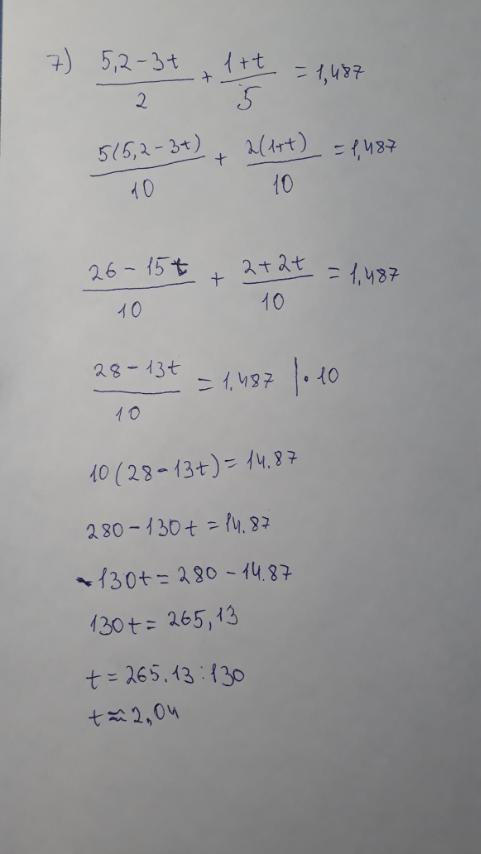 7) (5,2-3t)/2 + (1+t)/5 = 1,487
5(5,2-3t)/10 + 2(1+t)/10 = 1,487
(26-15t)/10 + (2+2t)/10 = 1,487
(28-13t)/10 = 1.487 |·10
10(28-13t) = 14.87
280-130t = 14.87
130t = 280-14.87
130t = 265,13
t = 265.13:130
t ≈ 2,04